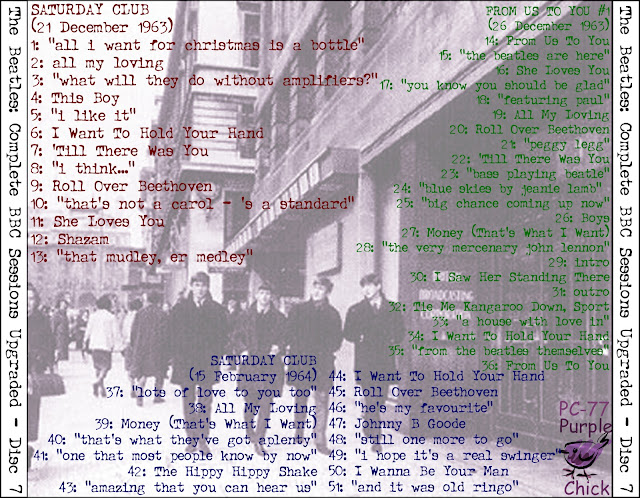 The Beatles: Complete BBC Sessions Upgraded - Disc 7
SATURDAY CLUB
(21 December 1963)
1: "all i want for christmas is a bottle"
2: all my loving
3: "what will they do without amplifiers?"
4: This Boy
5: "i like it"
6: I Want To Hold Your Hand
7: 'Till There Was You
8: "i think…"
9: Roll Over Beethoven
10: "that's not a carol - 's a standard"
11: She Loves You
12: Shazam
13: "that mudley, er medley"
FROM US TO YOU #1
(26 December 1963)
14: From Us To You
15: "the beatles are here"
16: She Loves You
17: "you know you should be glad"
18: "featuring paul"
19: All My Loving
20: Roll Over Beethoven
21: "peggy legg"
22: 'Till There Was You
23: "bass playing beatle"
24: "blue skies by jeanie lamb"
25: "big chance coming up now"
26: Boys
27: Money (That's What I Want)
28: "the very mercenary john lennon"
29: intro
30: I Saw Her Standing There
31: outro
32: Tie Me Kangaroo Down, Sport
33: "a house with love in"
34: I Want To Hold Your Hand
35: "from the beatles themselves"
36: From Us To You
SATURDAY CLUB
(15 February 1964)
37: "lots of love to you too"
38: All My Loving
39: Money (That's What I Want)
40: "that's what they've got aplenty"
41: "one that most people know by now"
42: The Hippy Hippy Shake
43: "amazing that you can hear us"
44: I Want To Hold Your Hand
45: Roll Over Beethoven
46: "he's my favourite"
47: Johnny B Goode
48: "still one more to go"
49: "i hope it's a real swinger"
50: I Wanna Be Your Man
51: "and it was old ringo"
PC-77
Purple
Chick
The Beatles: Complete BBC Sessions Upgraded - Disc 7